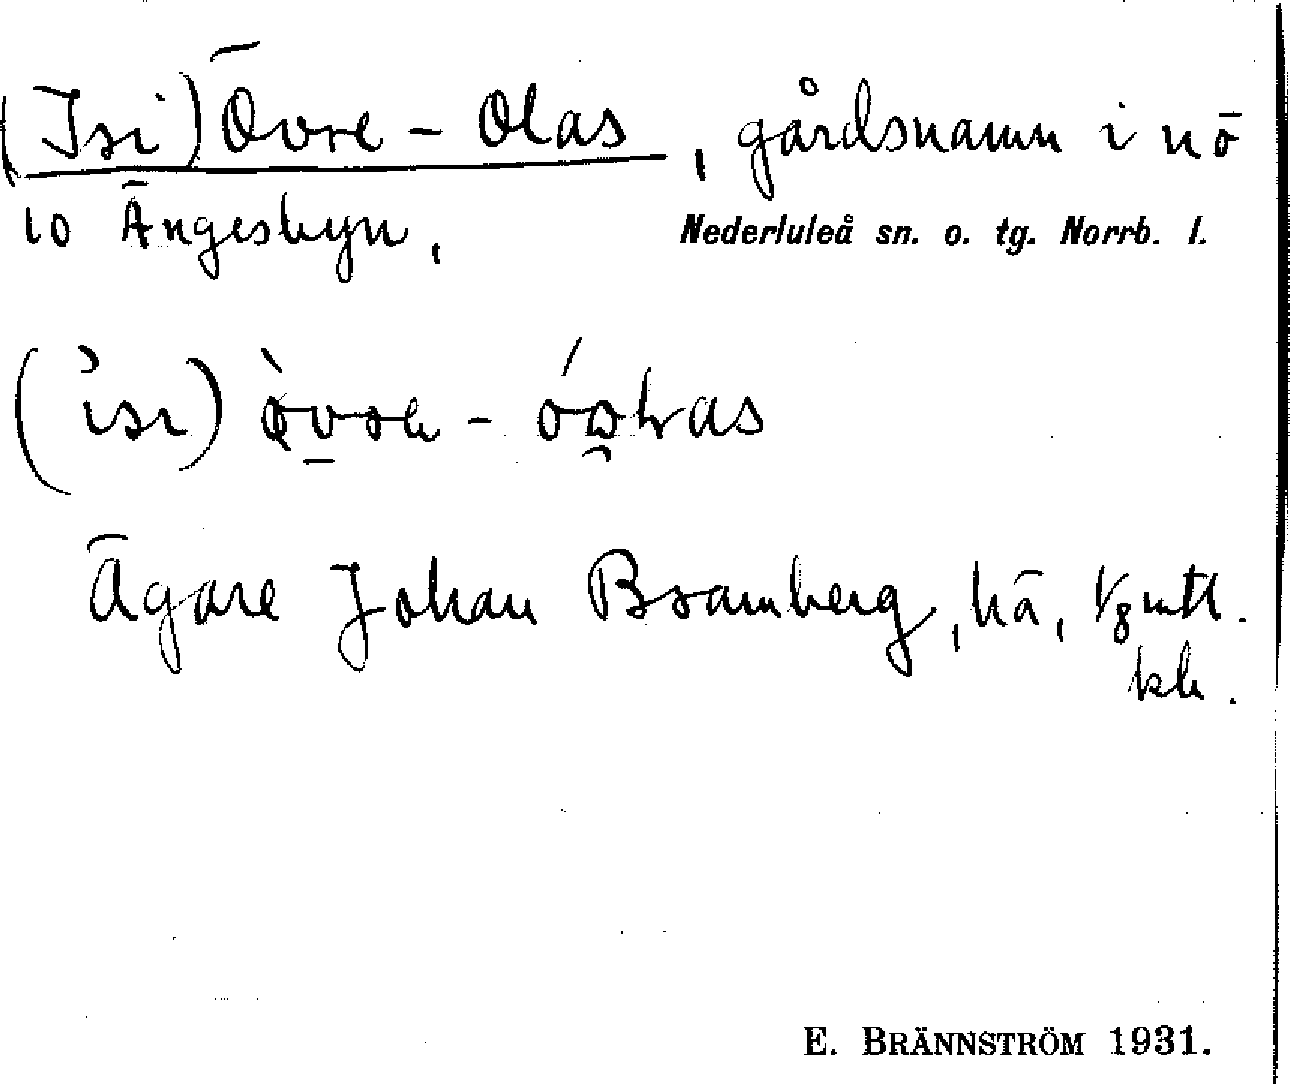 (Isi) Övre-Olas, gårdsnamn i nö
10 Ängesbyn,
Nederluleå sn. o. tg. Norrb. l.
(isi) òvre-
Ägare Johan Bramberg, hä, 1/8 mtl.
E. BRÄNNSTRÖM 1931.